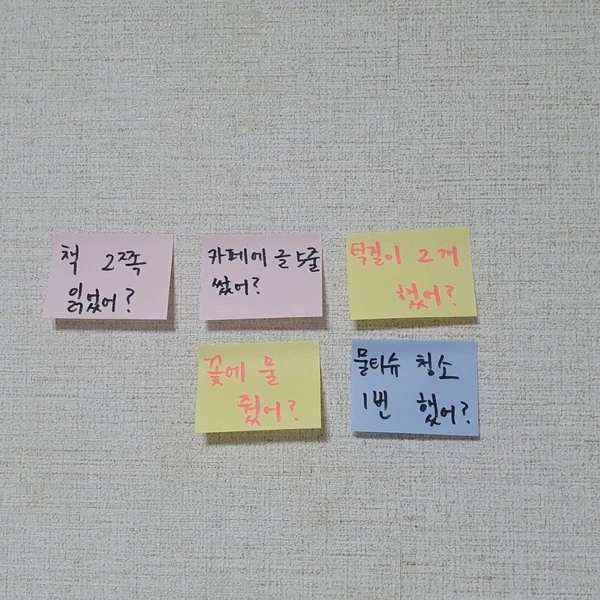 책 2쪽
읽었어?
카페에 글 5줄
썼어?
턱걸이 2개
했어?
꽃에 물
줬어?
물티슈 청소
1번 했어?